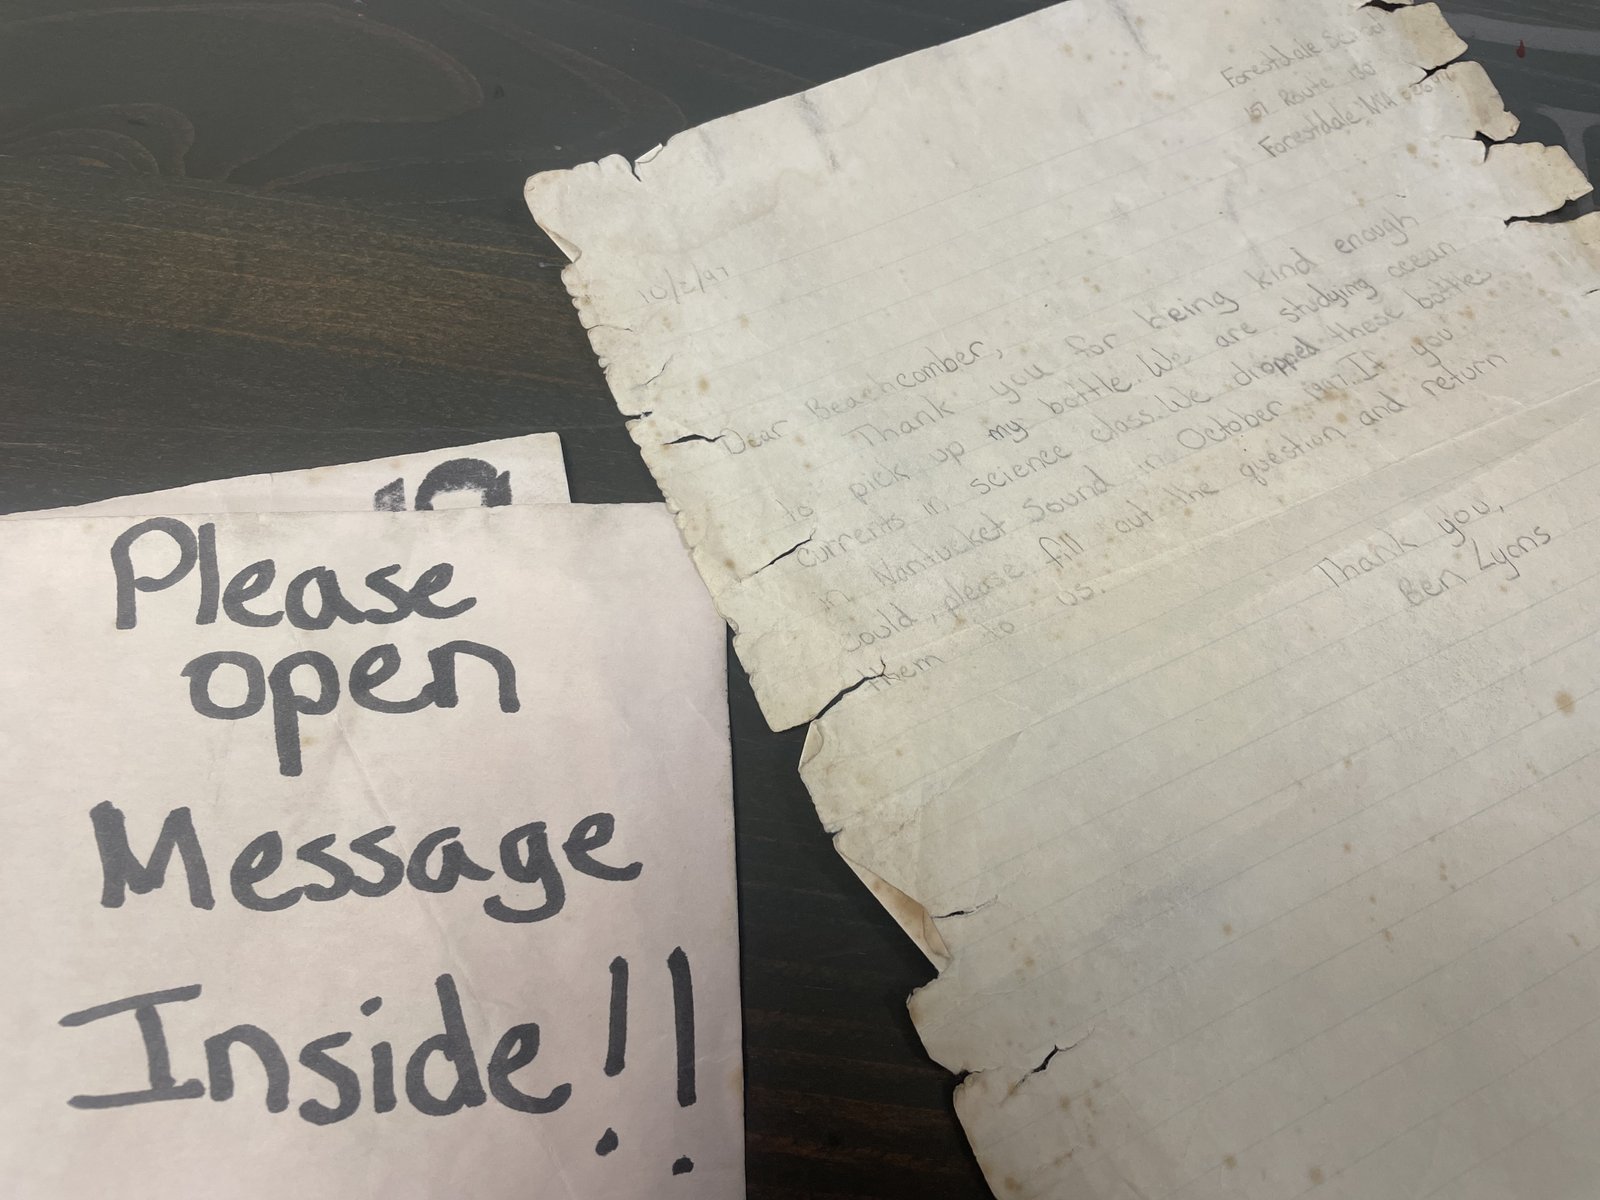 Please
open
Message
Inside!!
Forestdale School
151 Route 130
Forestdale MA 02644
10/2/97
Dear Beachcomber,
Thank you for being kind enough
to pick up my bottle. We are studying ocean
currents in science class. We dropped these bottles
in Nantucket Sound in October 1997. If you
could, please fill out the question and return
them to us.
Thank you,
Ben Lyons